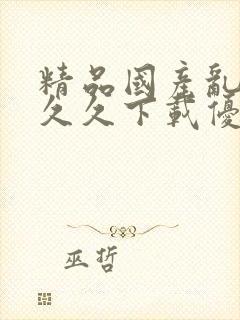 精品國產亂
久久下載優
巫哲